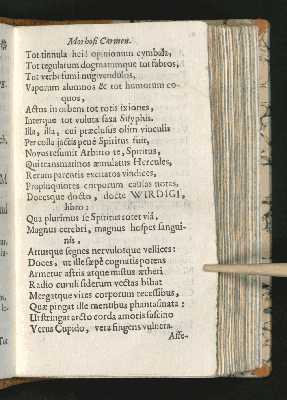 Morhofi Carmen.
Tot tinnula hei! opinionum cymbala,
Tot regulatum dogmatumque tot fabros,
Tot verbi fumi nugivendulos,
Vaporum alumnos & tot humorum co-
quos,
Actus in orbem tot rotis ixiones,
Interque tot voluta saxa Sisyphis.
Illa, illa, cui præclusis olim vinculis
Per colla jactis penè Spiritus fuit,
Novos resumit Arbitro te, Spiritus,
Qui transmarinos æmulatus Hercules,
Rerum parentis excitatos vindices,
Propinquiores corporum causas notas,
Docesque docto, docte WIRDIGI,
libro:
Qua plurimus se Spiritus rotet viâ,
Magnus cerebri, magnus hospes sangui-
nis,
Artusque segnes nervulosque vellicet:
Doces, ut ille sæpè cognatis potens
Armetur astris atque mistus ætheri
Radio curuli siderum vectas bibat
Mergatque vires corporum recessibus,
Quæ pingat ille mentibus phantasmata:
Ut stringat arcto corda amoris fascino
Verus Cupido, vera fingens vulnera.
Asse-